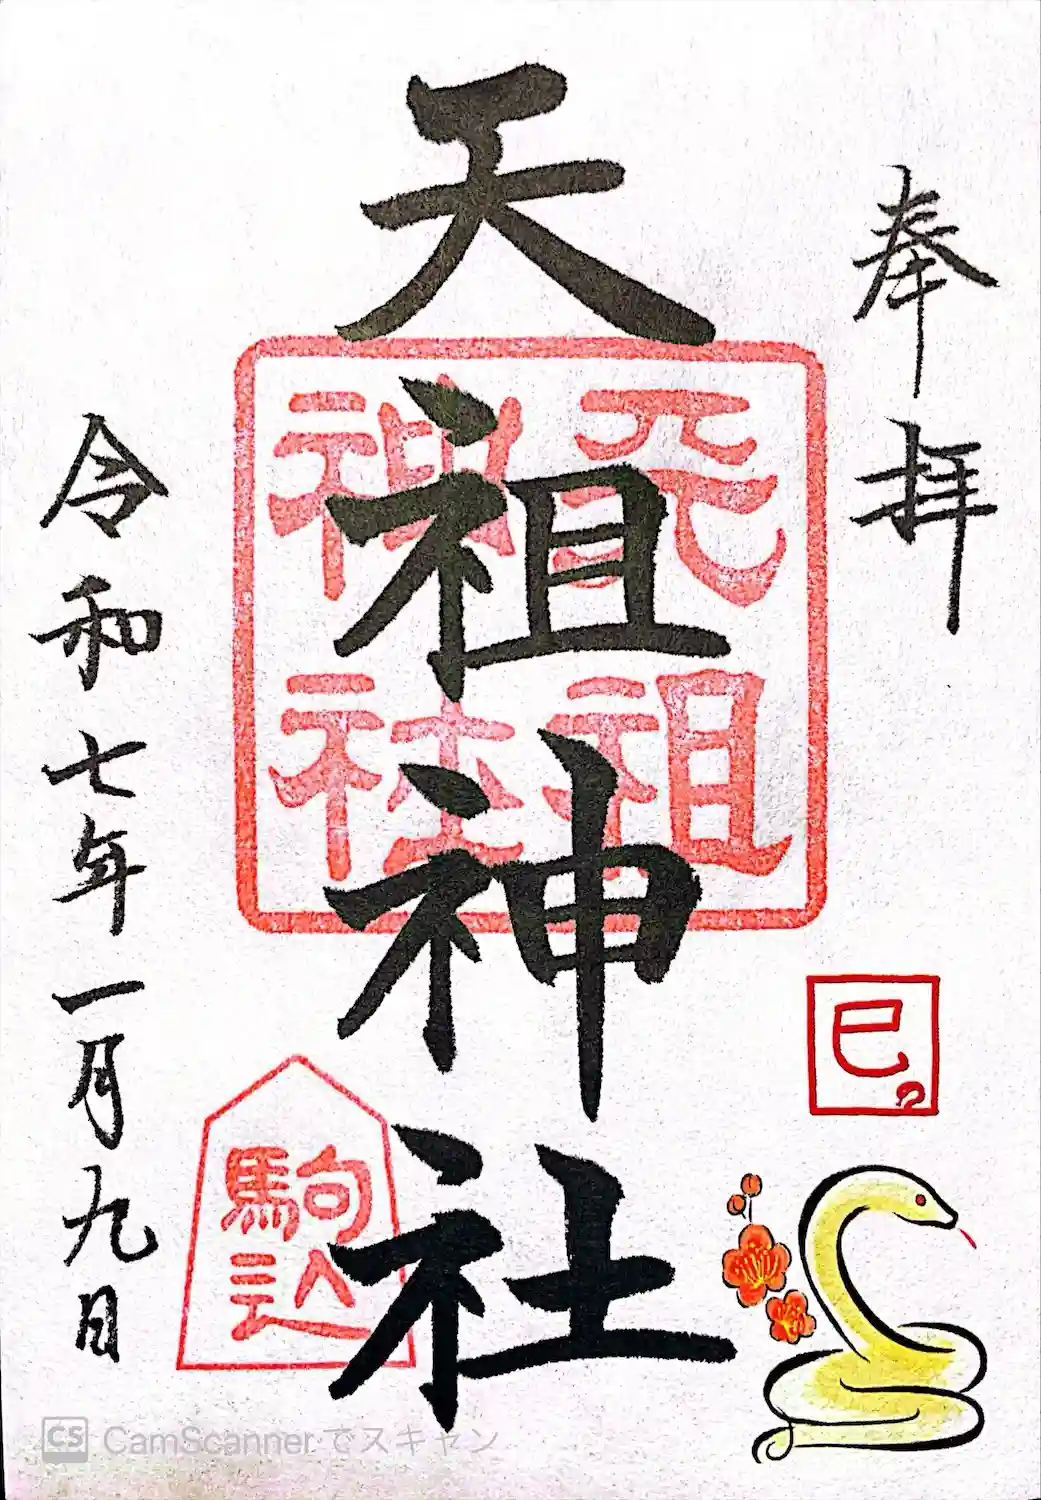 奉拝
天祖神社
天祖神社
巳
駒込
令和七年一月九日
CS CamScanner でスキャン